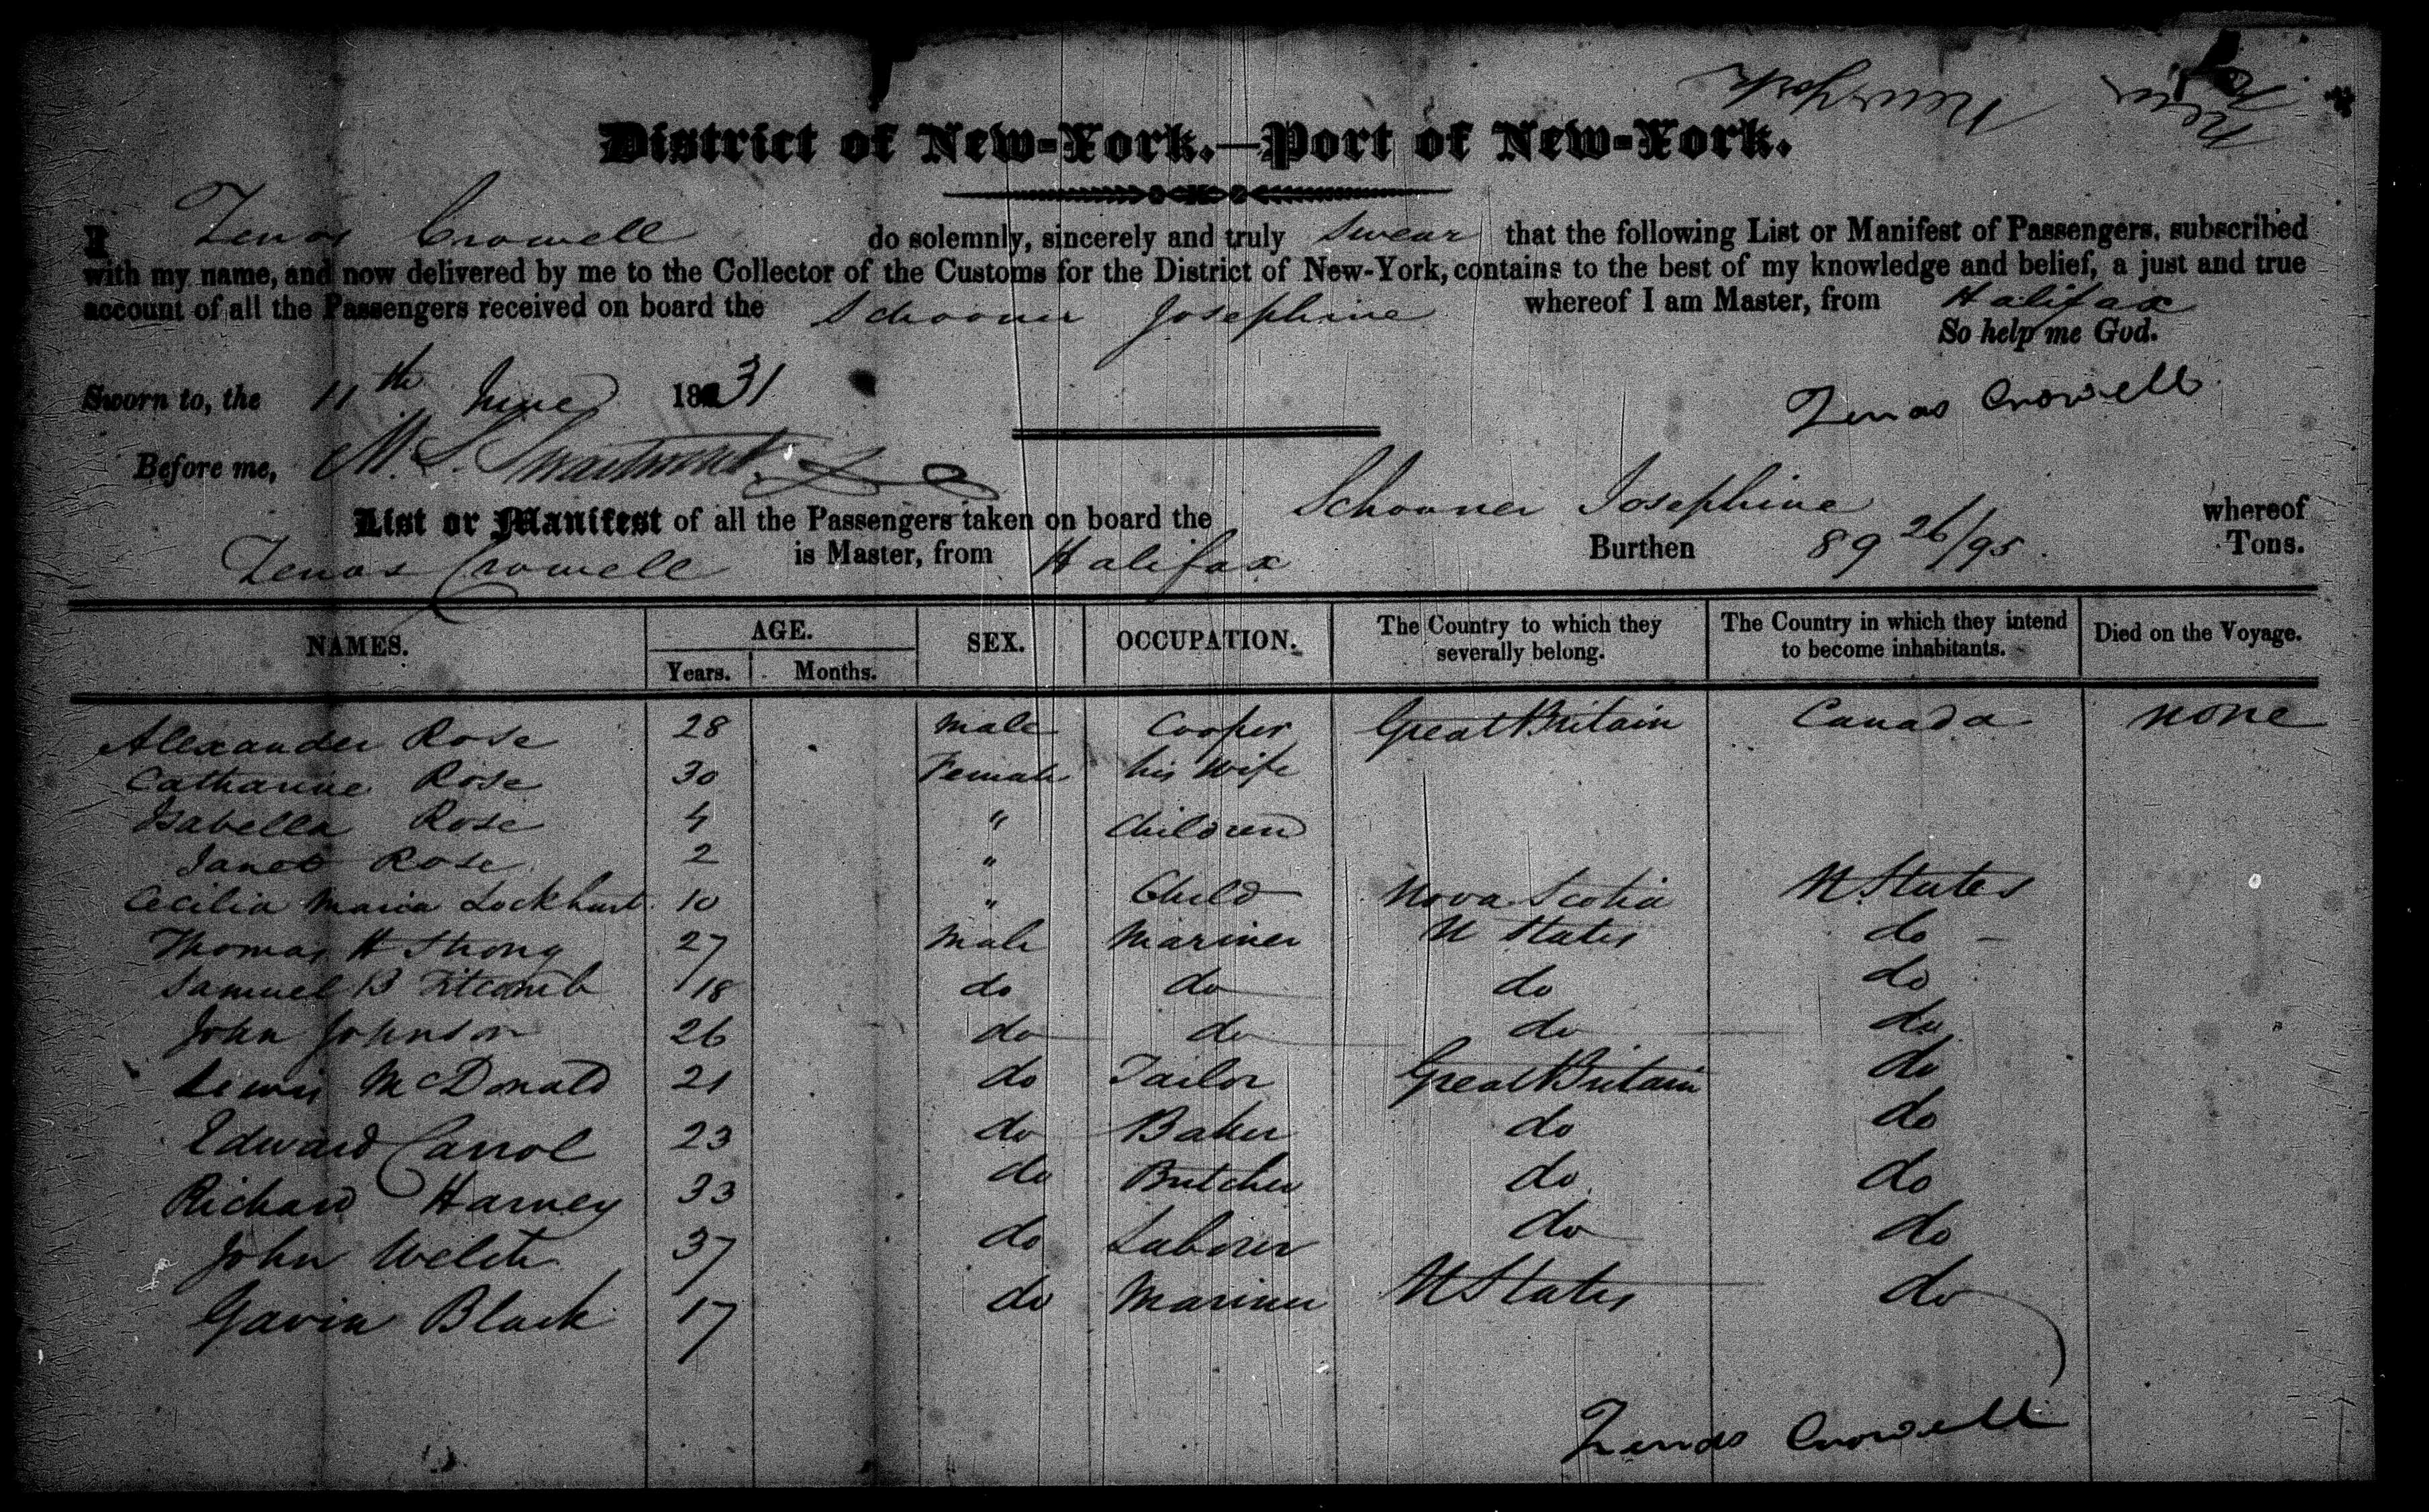 New York
District of New-York.—Port of New-York.
I Zenas Crowell do solemnly, sincerely and truly Swear that the following List or Manifest of Passengers, subscribed
with my name, and now delivered by me to the Collector of the Customs for the District of New-York, contains to the best of my knowledge and belief, a just and true
account of all the Passengers received on board the Schooner Josephine whereof I am Master, from Halifax
So help me God.
Sworn to, the 11th June 1831
Zenas Crowell
Before me, M. S. Swartwout
List or Manifest of all the Passengers taken on board the Schooner Josephine whereof
Zenas Crowell is Master, from Halifax Burthen 89 26/95 Tons.
NAMES. AGE. SEX. OCCUPATION. The Country to which they severally belong. The Country in which they intend to become inhabitants. Died on the Voyage.
Years. Months.
Alexander Rose 28 Male Cooper Great Britain Canada none
Catharine Rose 30 Female his Wife
Isabella Rose 4 " Children
Janet Rose 2 "
Cecilia Maria Lockhart 10 " Child Nova Scotia U States
Thomas H Strong 27 Male Mariner U States do
Samuel B Titcomb 18 do do do do
John Johnson 26 do do do do
Lewis McDonald 21 do Tailor Great Britain do
Edward Carrol 23 do Baker do do
Richard Harney 33 do Butcher do do
John Welch 37 do Laborer do do
Gavin Black 17 do Mariner U States do
Zenas Crowell